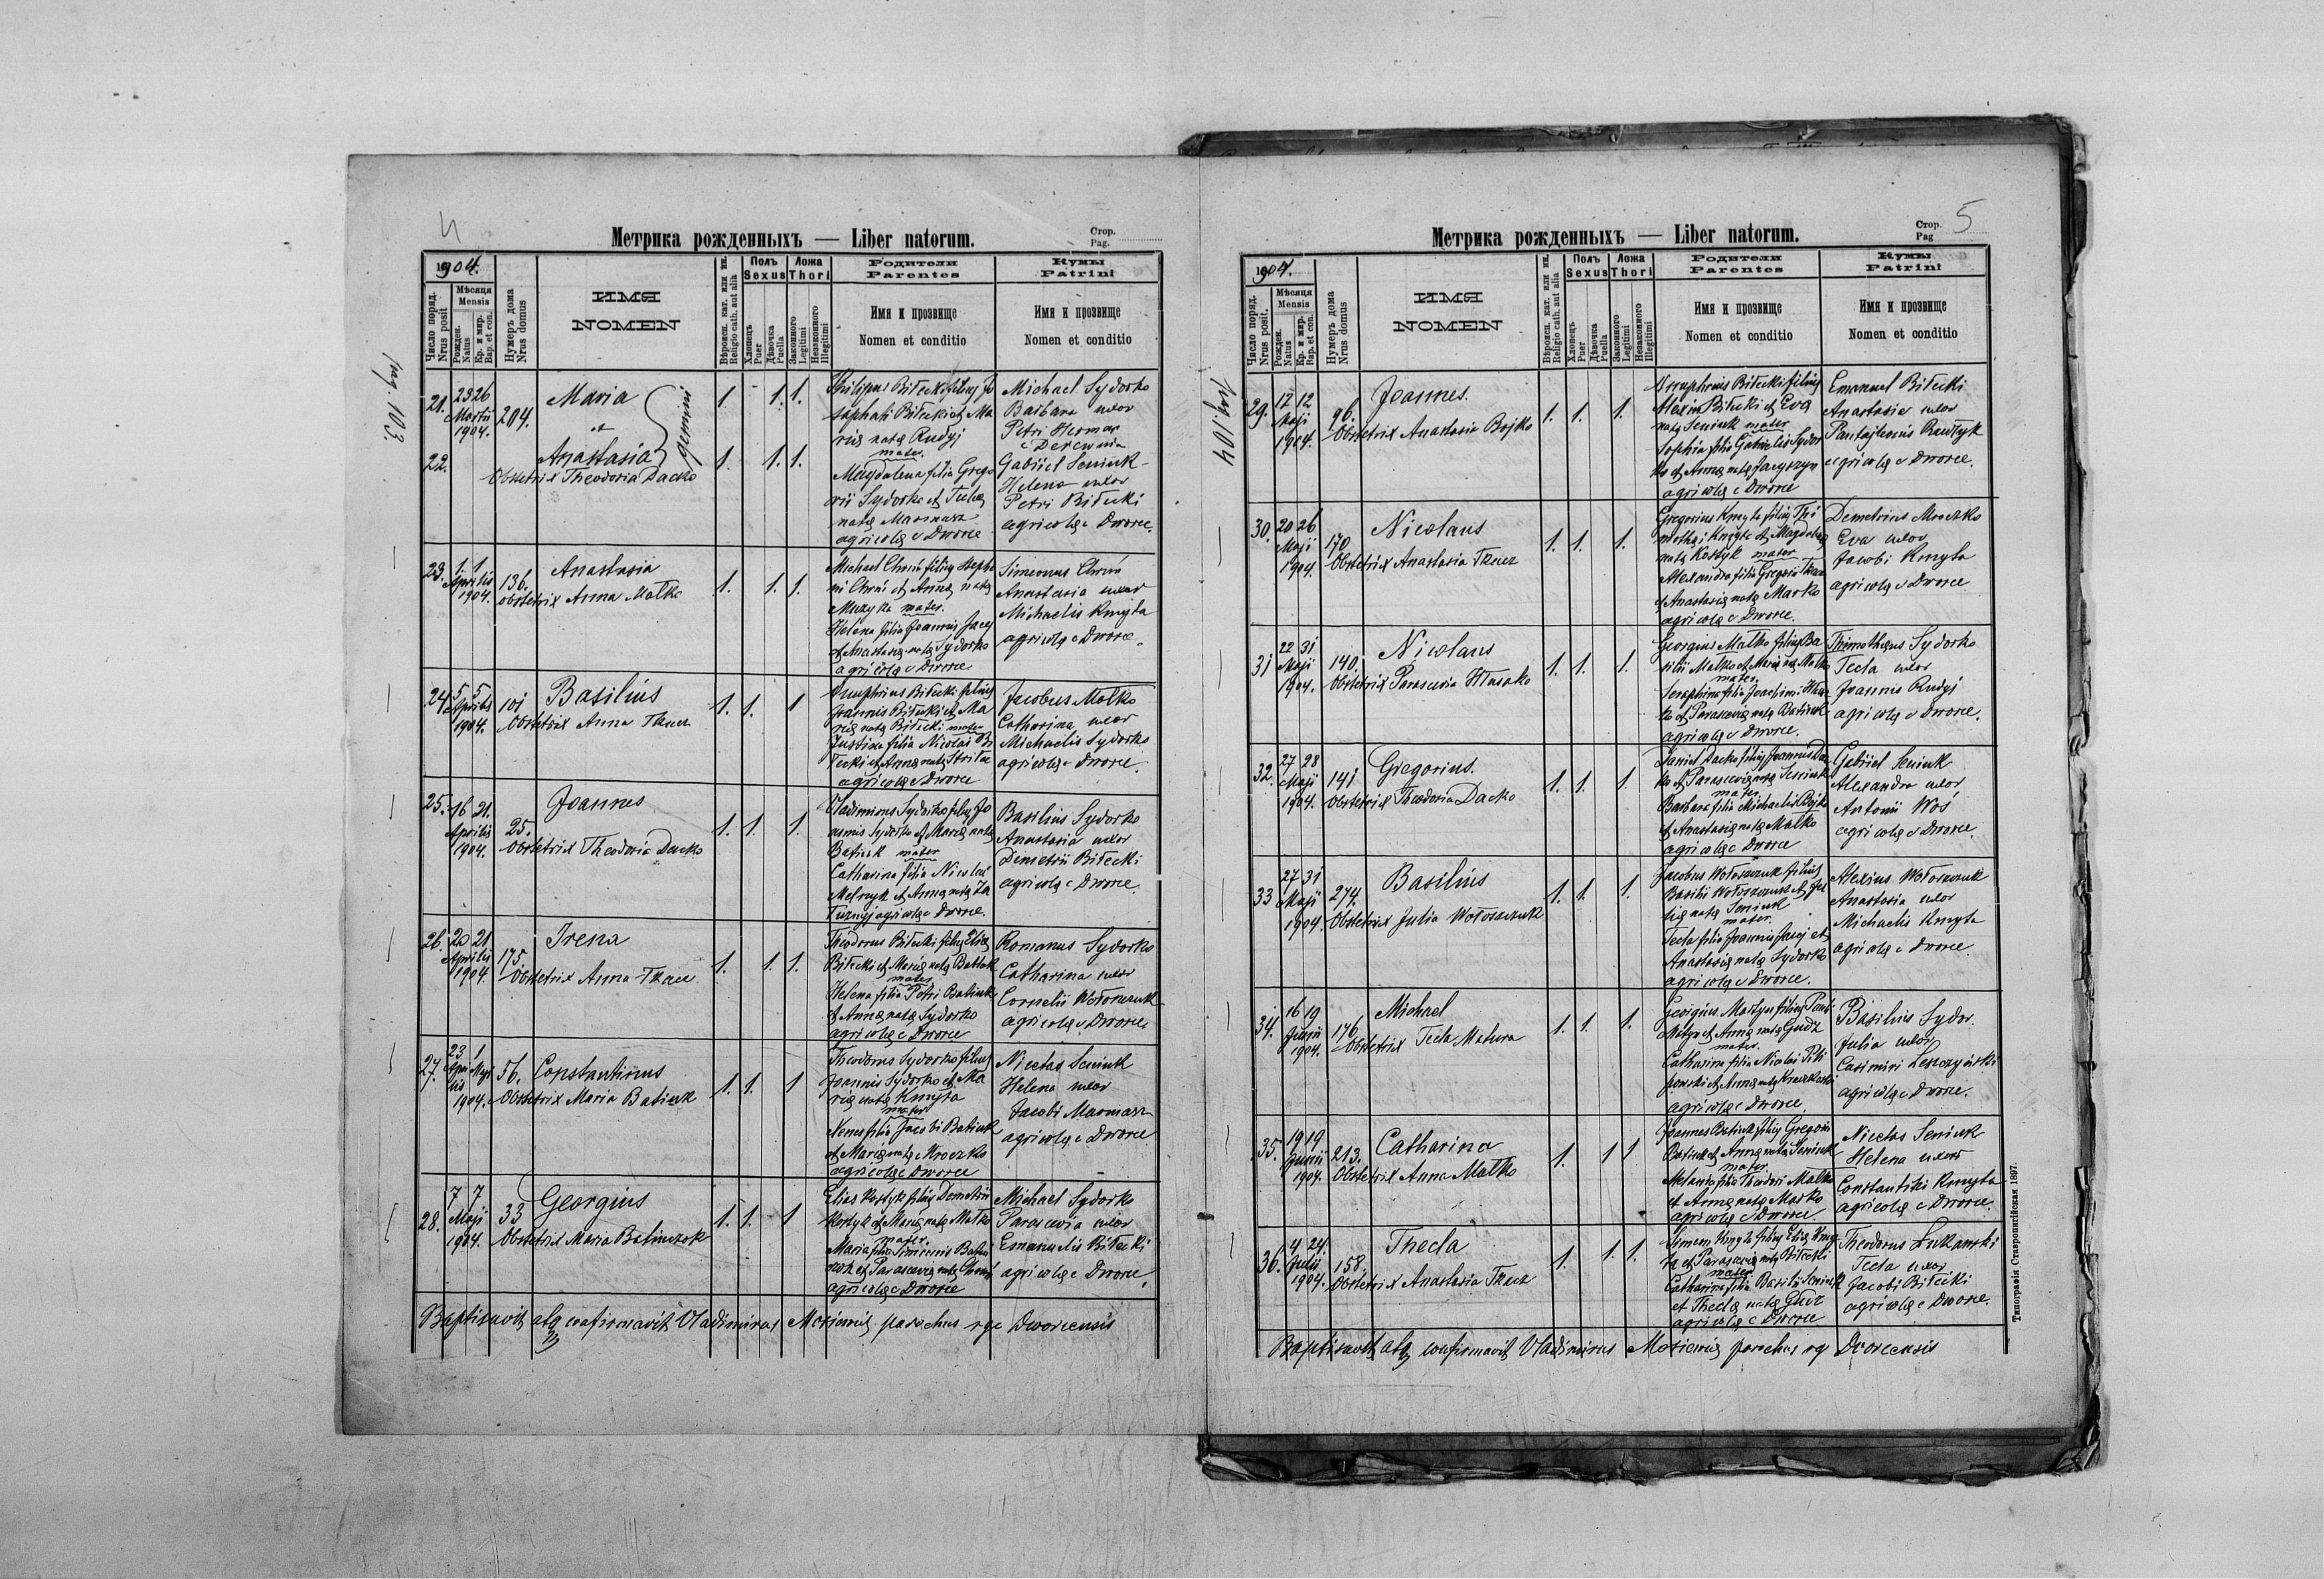 4
Метрика рожденныхъ — Liber natorum.
Стор.
Pag.
1904.
Число поряд.
Nrus posit
Мѣсяця
Mensis
Рожден.
Natus
Кр. и мир.
Bap. et con.
Нумеръ дома
Nrus domus
ИМЯ
NOMEN
Вѣроисп. кат. или ин.
Religio cath. aut alia
Полъ
Sexus
Хлопець
Puer
Дѣвочка
Puella
Ложа
Thori
Законного
Legitimi
Незаконного
Illegitimi
Родители
Parentes
Имя и прозвище
Nomen et conditio
Кумы
Patrini
Имя и прозвище
Nomen et conditio
pag. 103.
21.
23 26
Martii
1904.
204.
Maria
et
22.
Anastasia
gemini
Obstetrix Theodoria Dacko
1. 1. 1.
1. 1. 1.
Philippus Biłecki filius Jo
saphati Biłecki et Ma
riæ natæ Rudyj
mater.
Magdalena filia Grego
rii Sydorko et Teclæ
natæ Marmasz
agricolæ e Dworce
Michael Sydorko
Barbara uxor
Petri Herman
e Derewnia
Gabriel Seniuk
Helena uxor
Petri Biłecki
agricolæ e Dworce.
23.
1. 1
Aprilis
1904.
136.
Anastasia
obstetrix Anna Małko
1. 1. 1.
Michael Chruń filius Stepha
ni Chruń et Annæ natæ
Muzyka mater.
Helena filia Joannis Jacej
et Anastasiæ natæ Sydorko
agricolæ e Dworce
Simeonus Chruń
Anastasia uxor
Michaelis Kmyta
agricolæ e Dworce.
24.
5 5
Aprilis
1904.
101
Basilius
Obstetrix Anna Tkacz
1. 1. 1
Onuphrius Biłecki filius
Joannis Biłecki et Ma
riæ natæ Biłecki mater
Justina filia Nicolai Bi
łecki et Annæ natæ
agricolæ e Dworce
Jacobus Małko
Catharina uxor
Michaelis Sydorko
agricolæ e Dworce.
25.
16 21.
Aprilis
1904.
25.
Joannes
Obstetrix Theodoria Dacko
1. 1. 1.
Vladimirus Sydorko filius Jo
annis Sydorko et Mariæ natæ
Batiuk mater
Catharina filia Nicolai
Melnyk et Annæ natæ Za
agricolæ e Dworce.
Basilius Sydorko
Anastasia uxor
Demetrii Biłecki
agricolæ e Dworce.
26.
20 21
Aprilis
1904.
175.
Irena
Obstetrix Anna Tkacz
1. 1. 1.
Theodorus Biłecki filius Eliæ
Biłecki et Mariæ natæ
mater
Helena filia Petri Batiuk
et Annæ natæ Sydorko
agricolæ e Dworce
Romanus Sydorko
Catharina uxor
Cornelii Wołoszczuk
agricolæ e Dworce.
27.
23 1
Apri Maji
lis
1904.
56.
Constantinus
Obstetrix Maria Batiuk
1. 1. 1
Theodorus Sydorko filius
Joannis Sydorko et Ma
riæ natæ Kmyta
mater
filia Jacobi Batiuk
et Mariæ natæ Mroczko
agricolæ e Dworce
Nicetas Seniuk
Helena uxor
Jacobi Marmasz
agricolæ e Dworce
28.
7 7
Maji
1904.
33
Georgius
Obstetrix Maria Batiuczok
1. 1. 1
Elias Kostyk filius Demetrii
Kostyk et Mariæ natæ Małko
mater.
Maria filia Simeonis
et Parasceviæ natæ
agricolæ e Dworce
Michael Sydorko
Parascevia uxor
Emanuelis Biłecki
agricolæ e Dworce.
Baptisavit atq confirmavit Vladimirus parochus rgc Dworcensis
5
Метрика рожденныхъ — Liber natorum.
Стор.
Pag
1904.
Число поряд.
Nrus posit.
Мѣсяця
Mensis
Рожден.
Natus
Кр. и мир.
Bap. et con.
Нумеръ дома
Nrus domus
ИМЯ
NOMEN
Вѣроисп. кат. или ин.
Religio cath. aut alia
Полъ
Sexus
Хлопець
Puer
Дѣвочка
Puella
Ложа
Thori
Законного
Legitimi
Незаконного
Illegitimi
Родители
Parentes
Имя и прозвище
Nomen et conditio
Кумы
Patrini
Имя и прозвище
Nomen et conditio
pag. 104
29.
12 12
Maji
1904.
96.
Joannes.
Obstetrix Anastasia Bojko
1. 1. 1.
Onuphrius Biłecki filius
Alexii Biłecki et Eva
natæ Seniuk mater
Sophia filia Gabrielis Sydor
ko et Annæ natæ Jacyszyn
agricolæ e Dworce
Emanuel Biłecki
Anastasia uxor
agricolæ e Dworce.
30.
20 26
Maji
1904.
170
Nicolaus
Obstetrix Anastasia Tkacz
1. 1. 1.
Gregorius Kmyta filius Thi
mothei Kmyta et Magdalenæ
natæ Kostyk mater
Alexandra filia Gregorii Tkacz
et Anastasiæ natæ Marko
agricolæ e Dworce.
Demetrius Mroczko
Eva uxor
Jacobi Kmyta
agricolæ e Dworce
31
22 31
Maji
1904.
140.
Nicolaus
Obstetrix Parascevia Husako
1. 1. 1.
Georgius Małko filius Ba
silii Małko et Mariæ natæ Małko
mater.
Seraphina filia Joachimi
ko et Parasceviæ natæ Batiuk
agricolæ e Dworce.
Thimotheus Sydorko
Tecla uxor
Joannis Rudyj
agricolæ e Dworce.
32.
27 28
Maji
1904.
141
Gregorius.
Obstetrix Theodoria Dacko
1. 1. 1.
Daniel Dacko filius Joannis Dac
ko et Parasceviæ natæ Seniuk
mater
Barbara filia Michaelis Bojko
et Anastasiæ natæ Małko
agricolæ e Dworce
Gabriel Seniuk
Alexandra uxor
Antonii Woś
agricolæ e Dworce.
33
27 31
Maji
1904.
274.
Basilius
Obstetrix Julia Wołoszczuk
1. 1. 1.
Jacobus Wołoszczuk filius
Basilii Wołoszczuk et Ju
liæ natæ Seniuk
mater.
Tecla filia Joannis Jacej et
Anastasiæ natæ Sydorko
agricolæ e Dworce.
Alexius Wołoszczuk
Anastasia uxor
Michaelis Kmyta
agricolæ e Dworce.
34.
16 19
Junii
1904.
176.
Michael
Obstetrix Tecla Matura
1. 1. 1.
Georgius Martyn filius Pauli
et Annæ natæ Gudz
mater.
Catharina filia Nicolai
et Annæ natæ
agricolæ e Dworce.
Basilius Sydor.
Julia uxor
Casimiri Leszczyński
agricolæ e Dworce.
35.
19 19
Junii
1904.
213.
Catharina
Obstetrix Anna Małko
1. 1 1
Joannes Batiuk filius Gregorii
Batiuk et Annæ natæ Seniuk
mater.
Melania filia Theodori Małko
et Annæ natæ Marko
agricolæ e Dworce.
Nicetas Seniuk
Helena uxor
Constantini Kmyta
agricolæ e Dworce.
36.
4 24.
Julii
1904.
158.
Thecla
Obstetrix Anastasia Tkacz
1. 1. 1.
Simeon Kmyta filius Eliæ Kmy
ta et Parasceviæ natæ Biłecki
mater
Catharina filia Basilii Seniuk
et Theclæ natæ Gudz
agricolæ e Dworce
Theodorus Łukawski
Tecla uxor
Jacobi Biłecki
agricolæ e Dworce.
Baptisavit atq confirmavit Vladimirus parochus rg Dworcensis
Типографія Ставропигійская 1897.